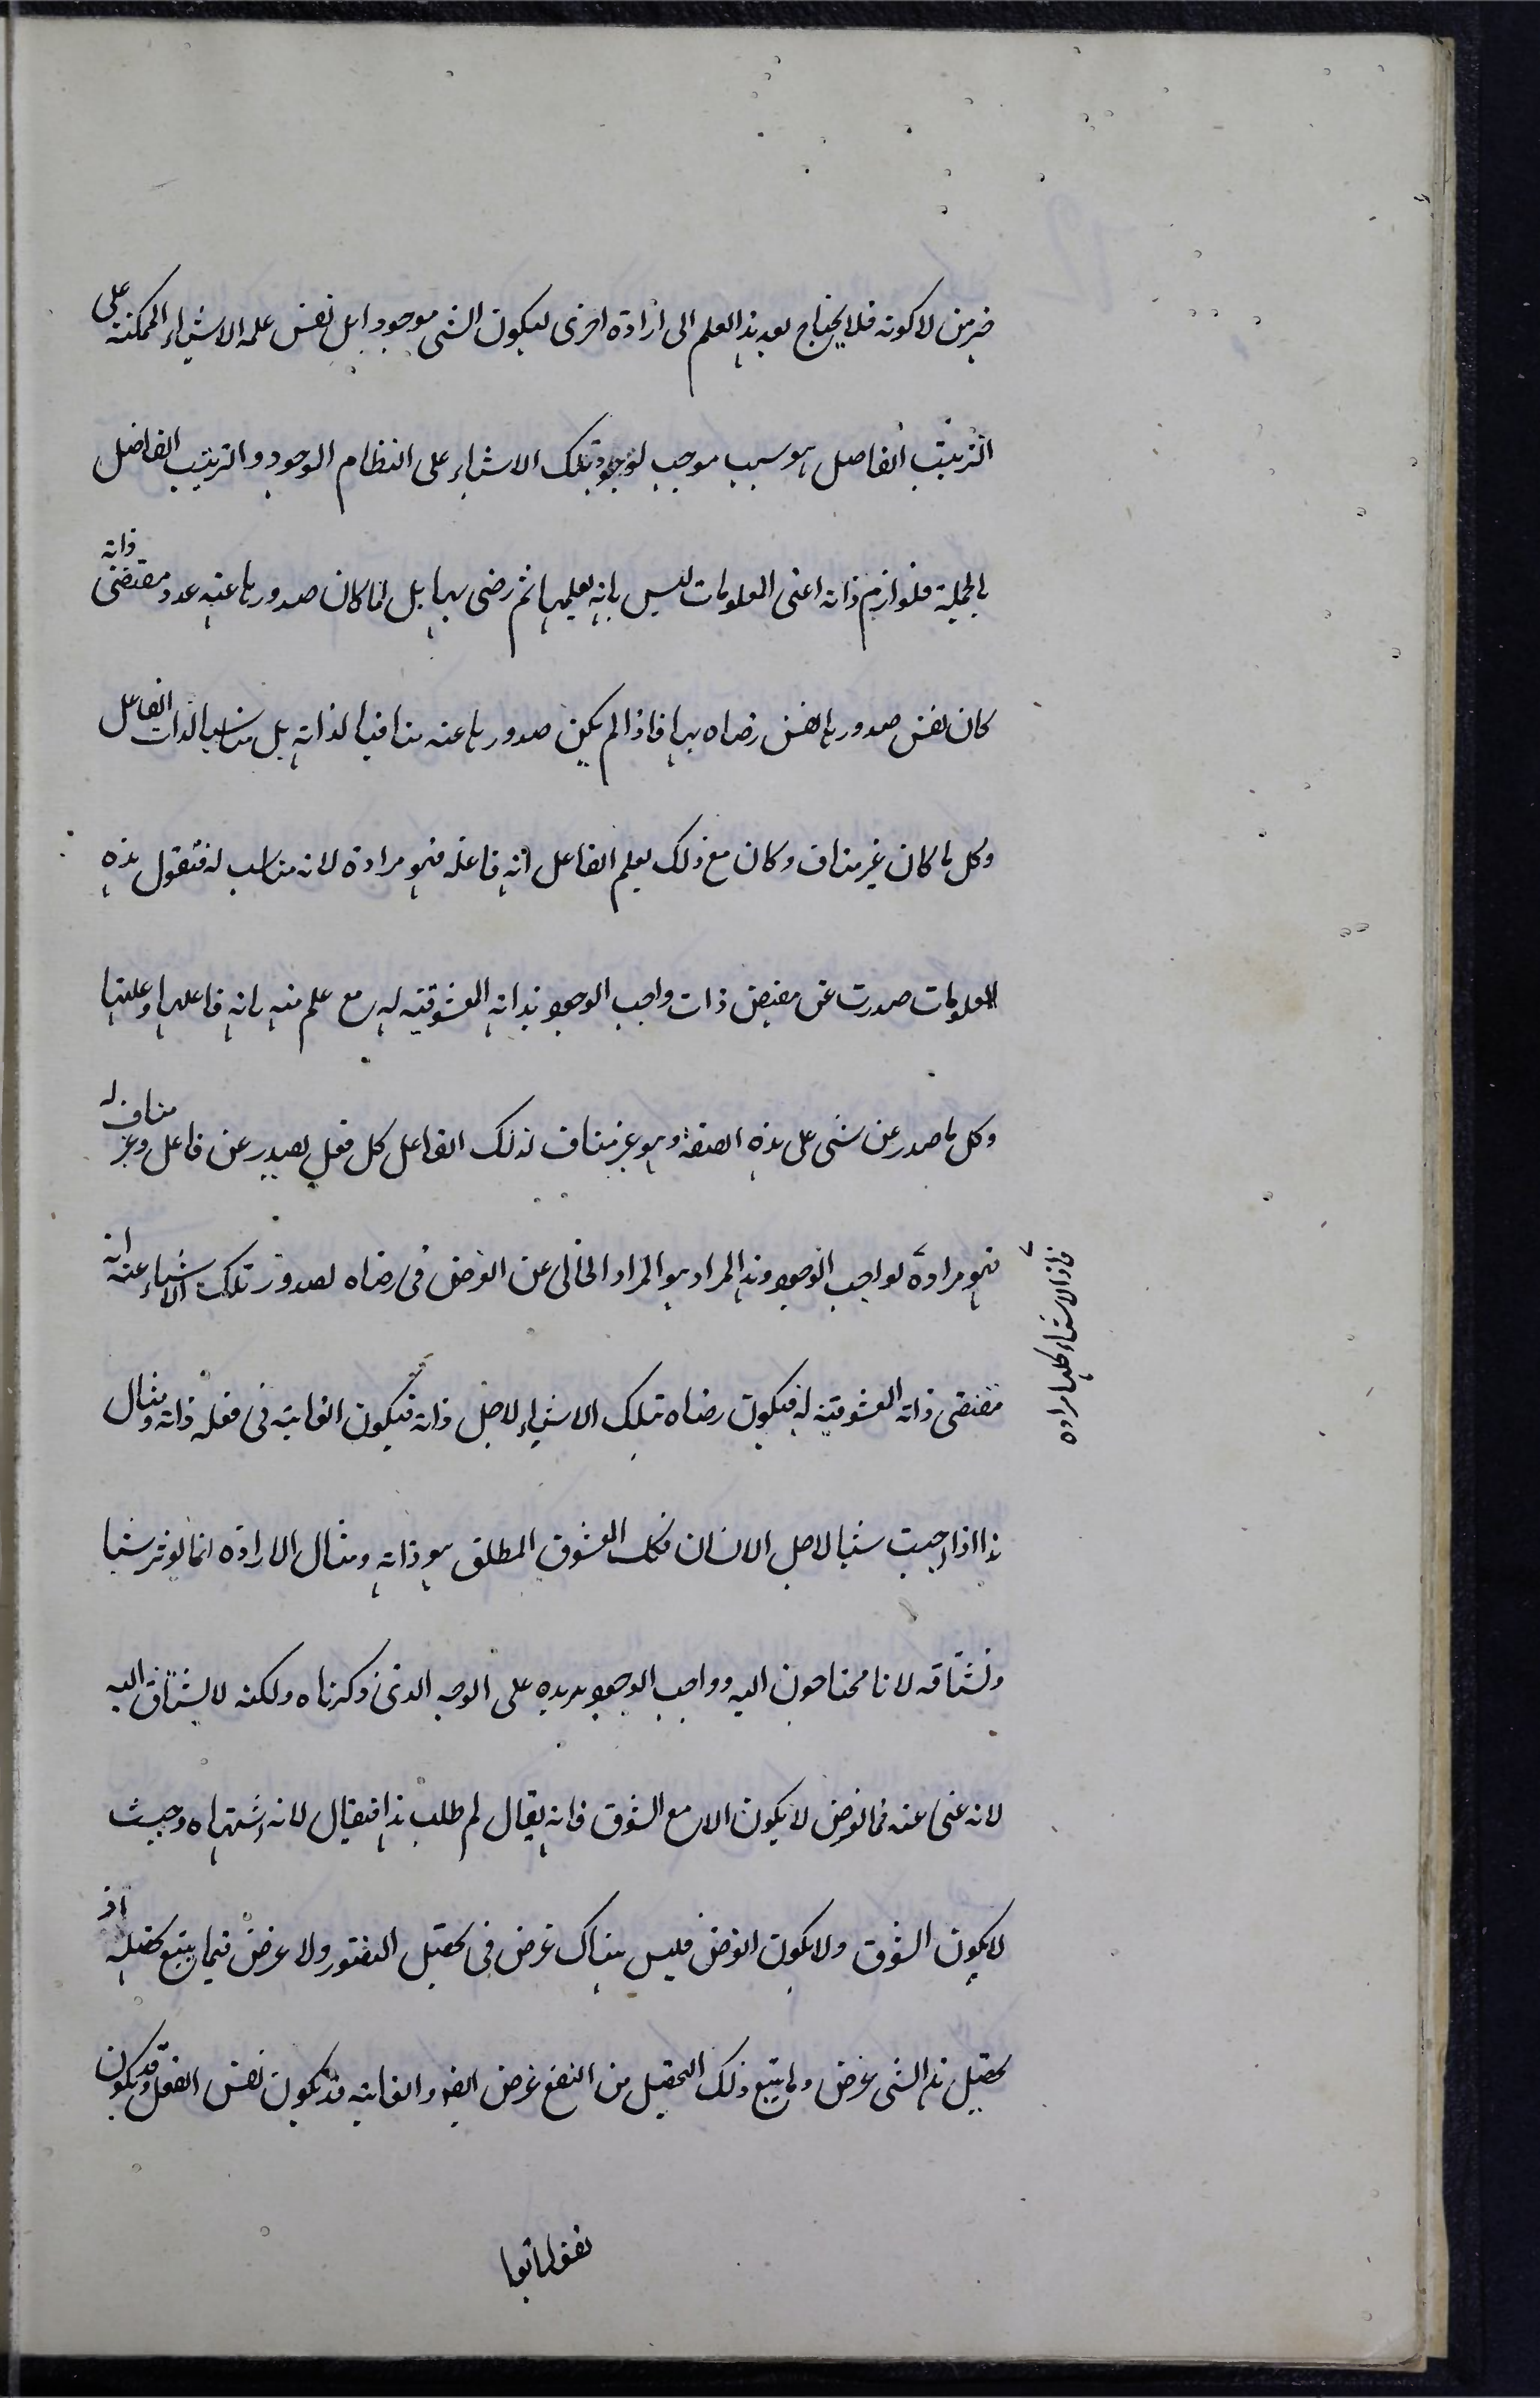 خير من لا كونه فلا يحتاج بعد هذا العلم الى ارادة اخرى ليكون الشى موجودا بل نفس علمه الاشياء الممكنة على
الترتيب الفاضل هو سبب موجب لوجود تلك الاشياء على النظام الوجود و الترتيب الفاضل
بالجملة فلوازم ذاته اعنى المعلومات ليس بانه يعلمها ثم رضى بها بل لما كان صدورها عنه عدد مقتضى ذاته
كان نفس صدورها نفس رضاه بها فاذا لم يكن صدورها عنه منافيا لذاته بل مناسبا لذات الفاعل
وكل ما كان غير مناف و كان مع ذلك يعلم الفاعل انه فاعله فهو مراده لانه مناسب له فنقول هذه
المعلومات صدرت عن مقتضى ذات واجب الوجود بذاته المعشوقية له مع علم منه بانه فاعلها و علتها
وكل ما صدر عن شى على هذه الصفة و هو غير مناف لذلك الفاعل كل فعل يصدر عن فاعل و غير مناف له
فهو مراده لواجب الوجود و هذا المراد هو المراد الخالى عن الغرض فى رضاه لصدور تلك الاشياء عنه انه
فاذا الاشياء كلها مراده
مقتضى ذاته المعشوقية له فيكون رضاه تلك الاشياء لاجل ذاته فيكون الغاية فى فعله ذاته و مثال
هذا اذا احببت شيئا لاجل الانسان فكان المعشوق المطلق هو ذاته و مثال الارادة انما نوثر شيئا
و نشتاقه لانا محتاجون اليه و واجب الوجود يريده على الوجه الذى ذكرناه و لكنه لا يشتاق اليه
لانه غنى عنه فالغرض لا يكون الا مع الشوق فانه يقال لم طلب هذا فيقال لانه اشتهاه و حيث
لا يكون الشوق و لا يكون الغرض فليس هناك غرض فى تحصيل المتصور و لا غرض فيما يتبع تحصيله اذ
تحصيل هذا الشى غرض و ما يتبع ذلك التحصيل من النفع غرض ايضا و الغاية قد يكون نفس الفعل و قد يكون
نفعا تابعا